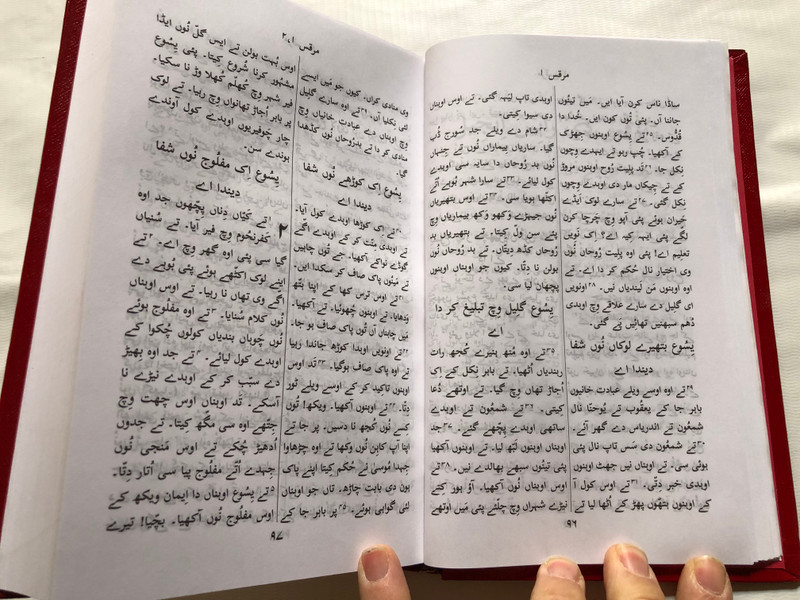 مرقس ۱.
ساڈا ناس کرن آیا ایں۔ مَیں تینُوں
جاننا آں۔ پئی تُوں کون ایں۔ خُدا دا
قُدُّوس۔ ²⁵تے یِسُوع اوہنُوں جھِڑک
کے آکھیا۔ چُپ رہو تے ایہدے وِچوں
نِکل جا۔ ²⁶تَد پلِیت رُوح اوہنُوں مروڑ
کے تے چیکاں مار دی اوہدے وِچوں
نِکل گئی۔ ²⁷تے سارے لوک ایڈے
حَیران ہوئے پئی آپو وِچ چرچا کرن
لگے پئی ایہہ کیہ اے؟ اِک نوِیں
تعلیِم اے! پئی اوہ پلِیت رُوحاں نُوں
وی اِختیار نال حُکم کر دا اے۔ تے
اوہ اوہنُوں مَن لَیندیاں نیں۔ ²⁸اونویں
ای گلِیل دے سارے علاقے وِچ اوہدی
دُھم سبھنِیں تھائِیں پَے گئی۔
یِسُوع بتھیرے لوکاں نُوں شفا
دیندا اے
²⁹تے اوہ اوسے ویلے عبادت خانیوں
باہر جا کے یعقُوب تے یُوحنّا نال
شمعُون تے اندریاس دے گھر آئے۔
³⁰تے شمعُون دی سَس تاپ نال پئی
ہوئی سی۔ تے اوہناں نیں جھٹ اوہنُوں
اوہدی خبر دِتّی۔ ³¹تے اوس کول آ
کے اوہنُوں ہتھّوں پھڑ کے اُٹھا لیا تے
اوہدی تاپ لَیہہ گئی۔ تے اوس اوہناں
دی سیوا کِیتی۔
³²شام دے ویلے جد سُورج ڈُب
گیا۔ ساریاں بیماراں نُوں تے جِنہاں
نُوں بد رُوحاں دا سایہ سی اوہدے
کول لیائے۔ ³³تے سارا شہر بُوہے اُتّے
اکٹھا ہویا سی۔ ³⁴تے اوس بتھیریاں
نُوں جیہڑے وَکھو وَکھ بیماریاں وِچ
پئے سن وَل کِیتا۔ تے بتھیریاں بد
رُوحاں کڈھ دِتیاں۔ تے بد رُوحاں نُوں
بولن نا دِتا۔ کیوں جو اوہناں اوہنُوں
پچھان لیا سی۔
یِسُوع گلِیل وِچ تبلیغ کر دا
اے
³⁵تے اوہ مُنھ ہنیرے کُجھ رات
رہندیاں اُٹھیا۔ تے باہر نِکل کے اِک
اُجاڑ تھاں وِچ گیا۔ تے اوتھے دُعا
کِیتی۔ ³⁶تے شمعُون تے اوہدے
ساتھی اوہدے پِچھّے گئے۔ ³⁷جد
اوہناں اوہنُوں لَبّھ لیا۔ تے اوہنُوں آکھیا
پئی تینُوں سبھے بھالدے نیں۔ ³⁸تے
اوس اوہناں نُوں آکھیا۔ آؤ ہور کِتے
نیڑے شہراں وِچ چلّئے پئی مَیں اوتھے
۹۶
مرقس ۱، ۲.
وی منادی کراں۔ کیوں جو مَیں ایسے
لئی نِکلیا آں۔ ³⁹تے اوہ سارے گلِیل
وِچ اوہناں دے عبادت خانیاں وِچ
منادی کر دا تے بدرُوحاں نُوں کڈھدا
گیا۔
یِسُوع اِک کوڑھے نُوں شفا
دیندا اے
⁴⁰تے اِک کوڑھا اوہدے کول آیا۔
تے اوہدی مِنّت کر کے اوہدے اگّے
گوڈے نوا کے آکھیا۔ جے تُوں چاہیں
تے مَینُوں پاک صاف کر سکدا ایں۔
⁴¹تے اوس ترس کھا کے اپنا ہتّھ
وَدھایا۔ تے اوہنُوں چُھوہیا۔ تے آکھیا۔
مَیں چاہناں آں تُوں پاک صاف ہو جا۔
⁴²تے اونویں اوہدا کوڑھ جاندا رہیا
تے اوہ پاک صاف ہو گیا۔ ⁴³تَد اوس
اوہنُوں تاکِید کر کے اوسے ویلے ٹور
دِتّا۔ ⁴⁴تے اوہنُوں آکھیا۔ ویکھ! تُوں
کِسے نُوں کُجھ نا دسّیں۔ پر جا تے
اپنا آپ کاہِن نُوں وکھا تے اوہ چڑھاوا
جیہدا مُوسیٰ نے حُکم کِیتا اپنے پاک
ہون دی بابت چاڑھ۔ تاں جو اوہناں
لئی گواہی ہوئے۔ ⁴⁵پر باہر جا کے
اوس بُہت بولن تے ایس گلّ نُوں ایڈا
مشہُور کرنا شُروع کِیتا۔ پئی یِسُوع
فیر شہر وِچ کُھلّم کُھلا وڑ نا سکیا۔
پر باہر اُجاڑ تھاواں وِچ رہیا۔ تے لوک
چار چوفیریوں اوہدے کول آوندے
ہوندے سن۔
یِسُوع اِک مفلُوج نُوں شفا
دیندا اے
۲ ¹تے کِنّیاں دِناں پچھّوں جد اوہ
کفرنحُوم وِچ فیر آیا۔ تے سُنیاں
گیا سی پئی اوہ گھر وِچ اے۔ ²تے
اینے لوک اکٹھے ہوئے پئی بُوہے دے
اگّے وی تھاں نا رہیا۔ تے اوس اوہناں
نُوں کلام سُنایا۔ ³تے اوہ مفلُوج ہوئے
نُوں چوہاں بندیاں کولوں چُکوا کے
اوہدے کول لیائے۔ ⁴تے جد اوہ بھِیڑ
دے سبّب کر کے اوہدے نیڑے نا
آسکے۔ تَد اوہناں اوس چھت وِچ
جتھّے اوہ سی مگھ کِیتا۔ تے جدوں
اُدھیڑ چُکے تے اوس مَنجی نُوں
جِہدے اُتّے مفلُوج پیا سی اُتار دِتّا۔
⁵تے یِسُوع اوہناں دا اِیمان ویکھ کے
اوس مفلُوج نُوں آکھیا۔ بچّیا! تیرے
۹۷